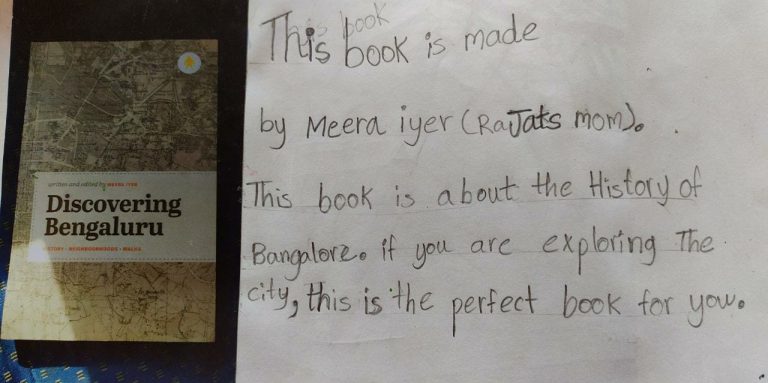 written and edited by MEERA IYER
Discovering
Bengaluru
STORY • NEIGHBOURHOODS • WALKS
This book
book is made
by Meera iyer (RaJats mom).
This book is about the History of
Bangalore. if you are exploring The
city, this is the perfect book for you.